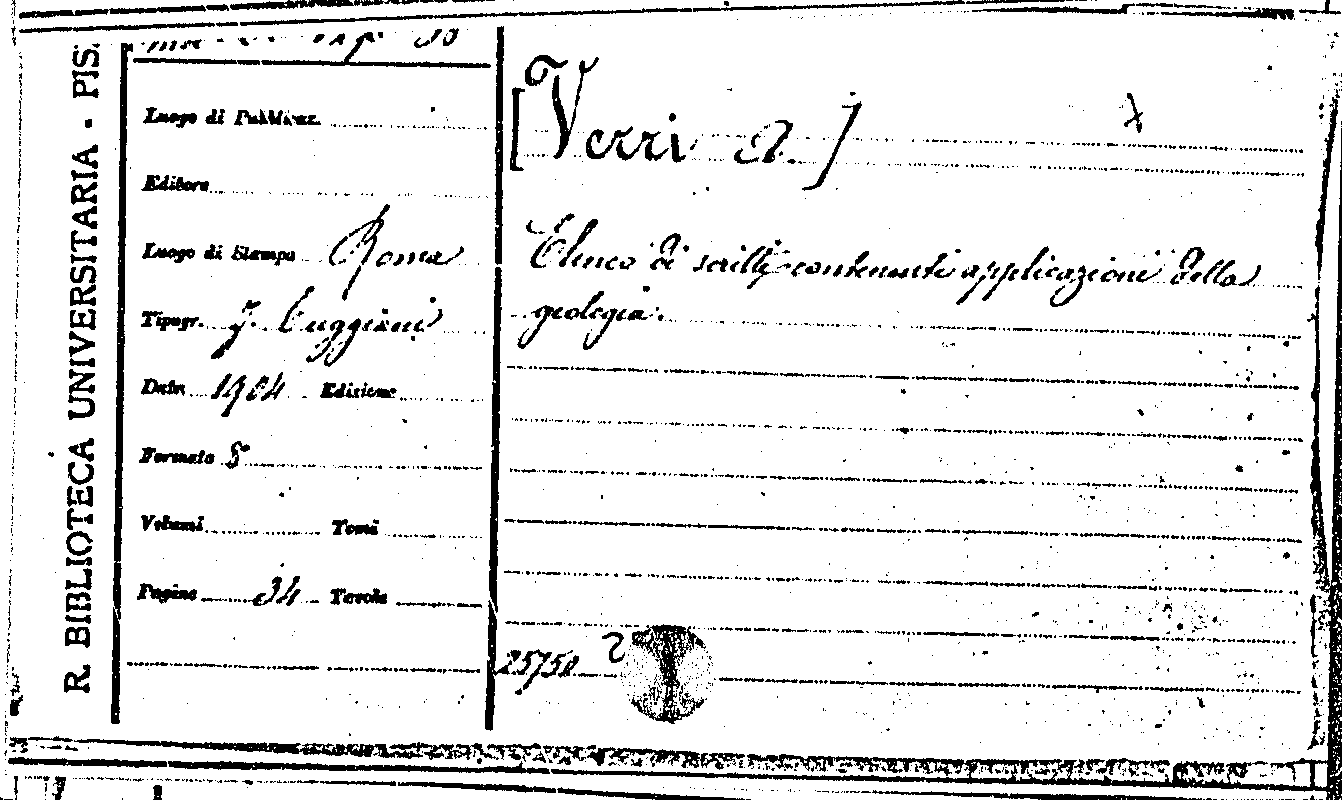 R. BIBLIOTECA UNIVERSITARIA - PIS.
Luogo di Pubblicaz.
Editore
Luogo di Stampa Roma
Tipogr. F. Cuggiani
Data 1904 Edizione
Formato 8°
Volumi Tomi
Pagine 34 Tavole
[Verri A.]
Elenco di scritti contenenti applicazioni della
geologia.
25750 2